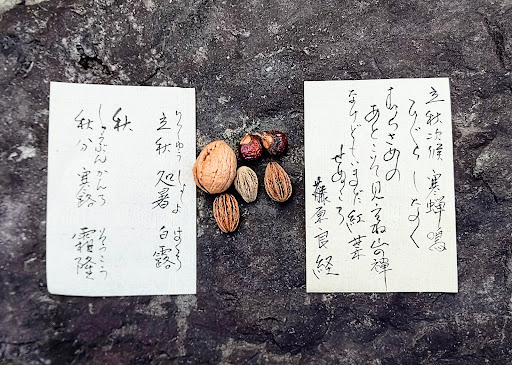 立秋次候 寒蝉鳴
ひぐらし なく
むらさめの
あとこそ見えね山の蝉
なけどもいまだ紅葉
せぬころ
藤原良経
りっしゅう しょしょ はくろ
立秋 処暑 白露
秋
しゅうぶん かんろ そうこう
秋分 寒露 霜降